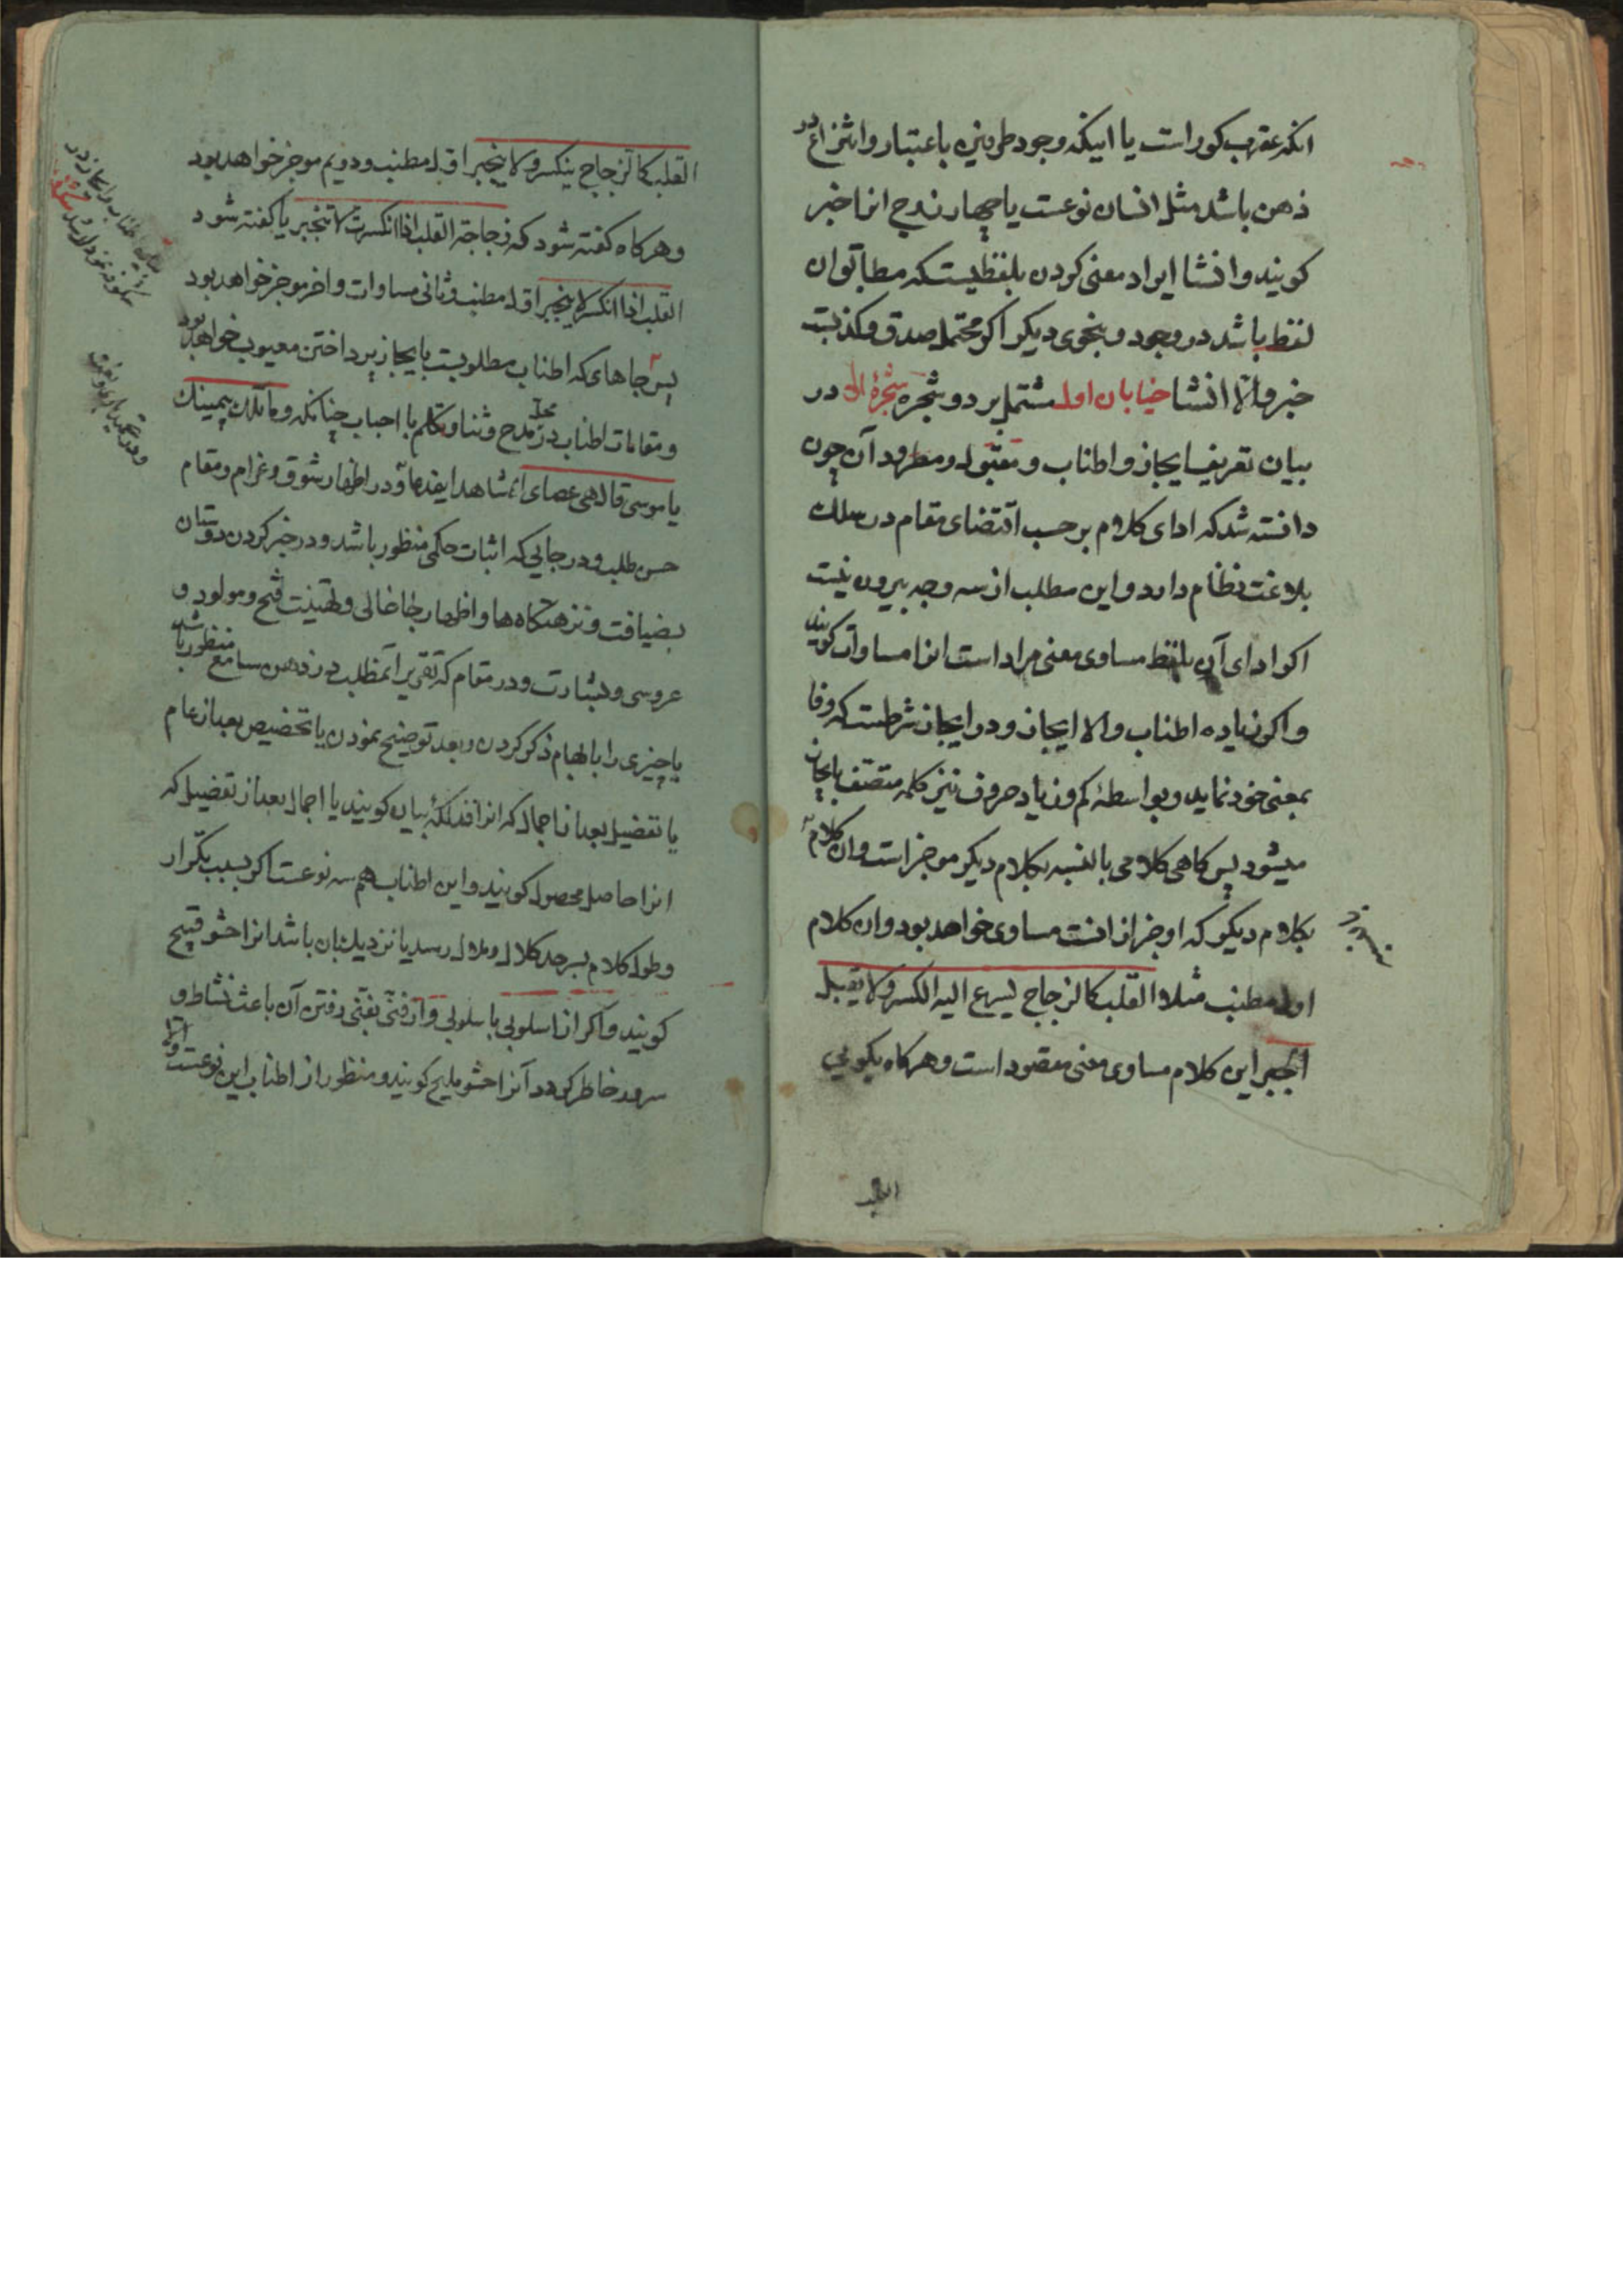 انکه عقرب کور است یا اینکه وجود طرفین باعتبار و انتزاع در
ذهن باشد مثل انسان نوعست یا چهار زوج انرا خبر
کویند و انشا ایراد معنی کردن بلفظیست که مطابق ان
لفظ باشد در وجود و بنحوی دیکر اکر محتمل صدق و کذبست
خبر والّا انشا خیابان اول مشتمل بر دو شجره شجرۀ اولی در
بیان تعریف ایجاز و اطناب و مقبول و مطرود آن چون
دانسته شد که ادای کلام بر حسب اقتضای مقام در سلک
بلاغت نظام دارد و این مطلب از سه وجه بیرون نیست
اکر ادای آن بلفظ مساوی معنی مراد است انرا مساوات کویند
و اکر زیاده اطناب و الا ایجاز و در ایجاز شرطست که وفا
بمعنی خود نماید و بواسطۀ کم و زیاد حروف نیز کلمه متصف بایجاز
میشود پس کاهی کلامی بالنسبه بکلام دیکر موجز است و ان کلام
بکلام دیکر که اوجز از انست مساوی خواهد بود و ان کلام
اول مطنب مثلا القلب کالزجاج یسرع الیه الکسر و لا یقبل
الجبر این کلام مساوی معنی مقصود است و هرکاه بکویی
القلب
القلب کالزجاج ینکسر و لا ینجبر اول مطنب و دویم موجز خواهد بود
و هرکاه کفته شود که زجاجة القلب اذا انکسرت لا تنجبر یا کفته شود
القلب اذا انکسر لا ینجبر اول مطنب و ثانی مساوات و اخر موجز خواهد بود
پس جاهای که اطناب مطلوبست بایجاز پرداختن معیوب خواهد بود
و مقامات اطناب در محل مدح و ثنا و تکلم با احباب چنانکه و ما تلک بیمینک
یا موسی قال هی عصای شاهد این مدعا و در اظهار شوق و غرام و مقام
حسن طلب و در جایی که اثبات حکمی منظور باشد و در خبر کردن دوستان
بضیافت و نزهتکاه ها و اظهار جا خالی و تهنیت فتح و مولود و
عروسی و بشارت و در مقام که تقریر آنمطلب در ذهن سامع منظور باشد
یا چیزی را بابهام ذکر کردن و بعد توضیح نمودن یا تخصیص بعد از عام
یا تفضیل بعد از اجمال که انرا فذلکۀ بیان کویند یا اجمال بعد از تفضیل که
انرا حاصل محصول کویند و این اطناب هم سه نوعست اکر بسبب تکرار
و طول کلام بسر حد کلال و ملال رسد یا نزدیک بان باشد انرا حشو قبیح
کویند و اکر از اسلوبی باسلوبی و از فنّی بفنّی رفتن آن باعث نشاط و
سرور خاطر کردد آنرا حشو ملیح کویند و منظور از اطناب این نوعست و الا